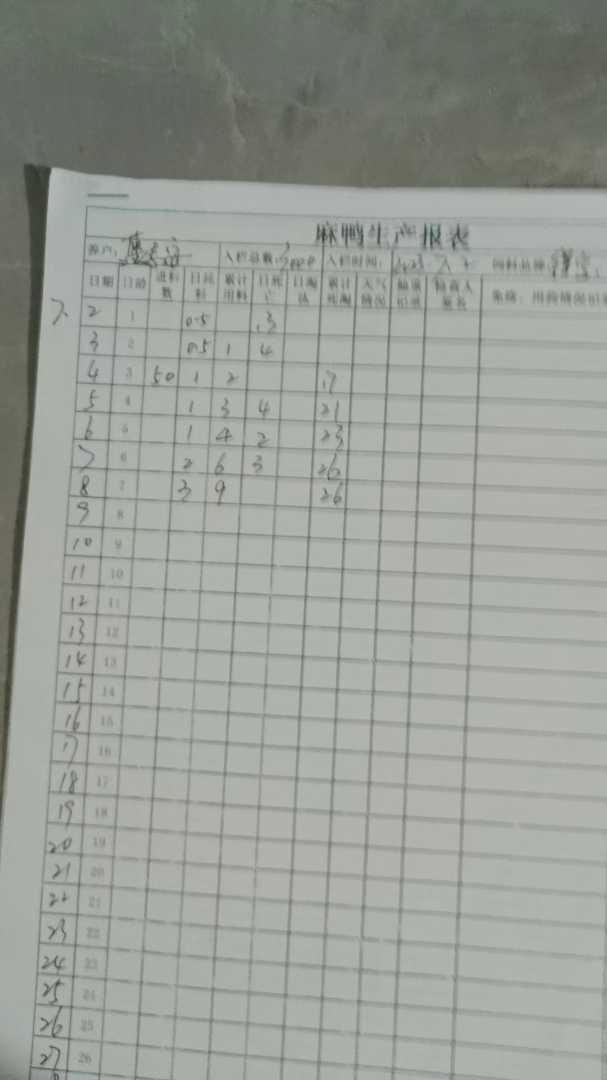 麻鸭生产报表
养户： 入栏总数： 入栏时间： 饲料品牌：
日期 日龄 进料数 日耗料 累计用料 日死亡 日淘汰 累计死淘 天气情况
7. 2 1 0.5 13
3 2 0.5 1 4
4 3 50 1 2 17
5 4 1 3 4 21
6 5 1 4 2 23
7 6 2 6 3 26
8 7 3 9 26
9 8
10 9
11 10
12 11
13 12
14 13
15 14
16 15
17 16
18 17
19 18
20 19
21 20
22 21
23 22
24 23
25 24
26 25
27 26